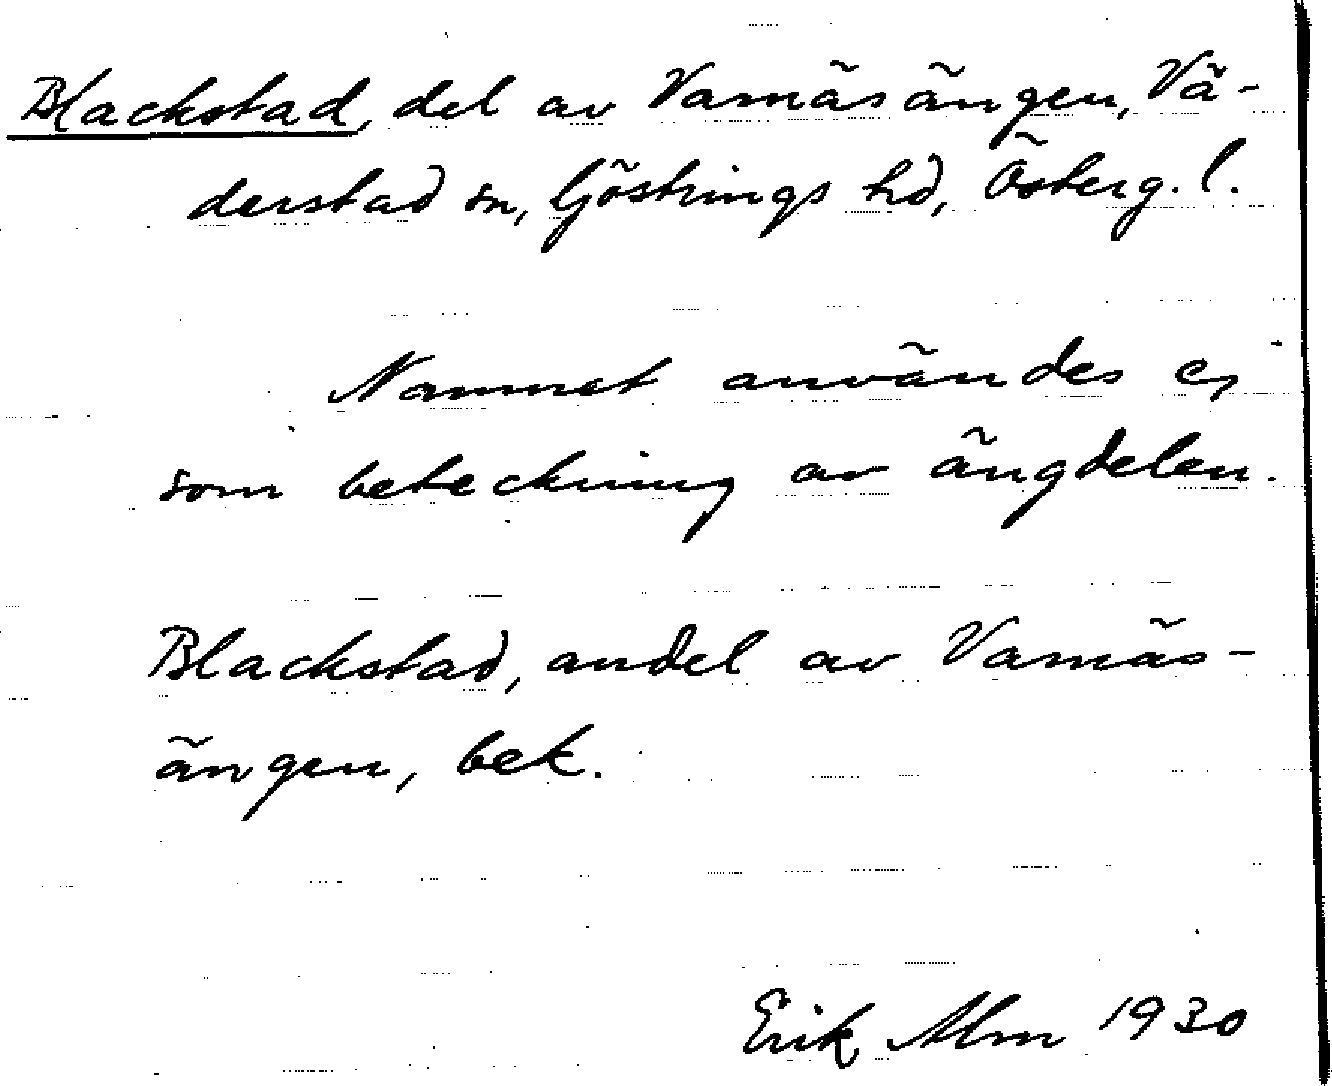 Blackstad, del av Varnäsängen, Vä-
derstad sn, Göstrings hd, Österg. l.
Namnet användes ej
som beteckning av ängdelen.
Blackstad, andel av Varnäs-
ängen, bek.
Erik Alm 1930